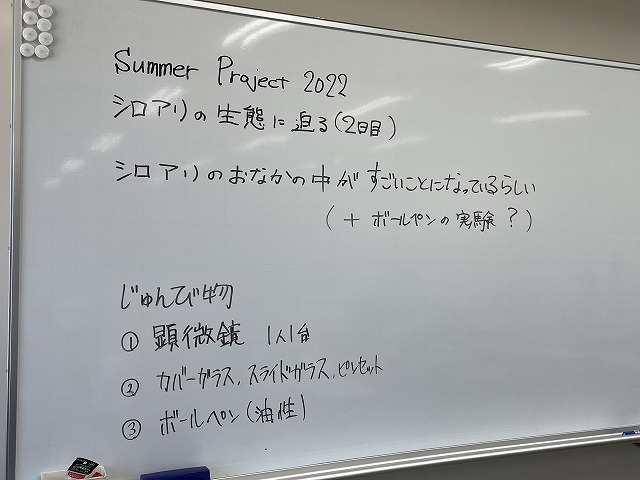 Summer Project 2022
シロアリの生態に迫る(2日目)
シロアリのおなかの中がすごいことになっているらしい
(+ ボールペンの実験?)
じゅんび物
① 顕微鏡 1人1台
② カバーガラス、スライドガラス、ピンセット
③ ボールペン(油性)